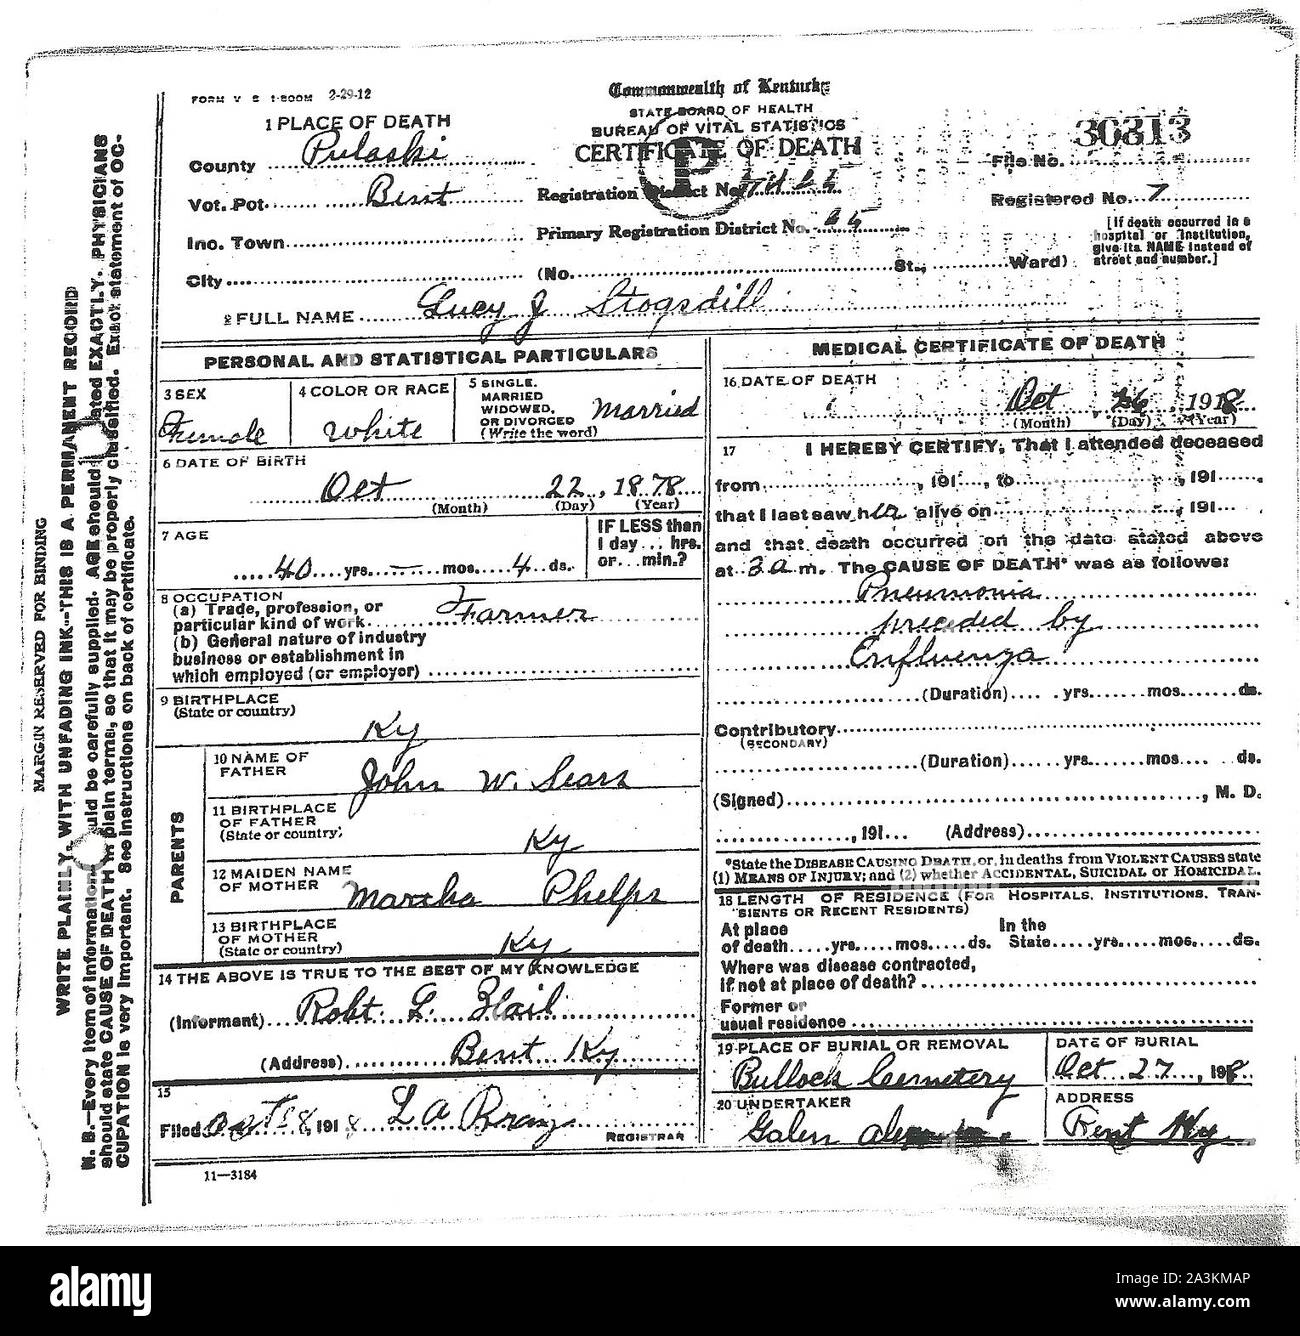 FORM V S 1-500M 2-29-12
Commonwealth of Kentucky
STATE BOARD OF HEALTH
BUREAU OF VITAL STATISTICS
CERTIFICATE OF DEATH
1 PLACE OF DEATH
County Pulaski
Vot. Pct. Bent
Inc. Town
City
Registration District No.
Primary Registration District No.
(No. St., Ward)
File No. 30313
Registered No. 7
[If death occurred in a
hospital or institution,
give its NAME instead of
street and number.]
2 FULL NAME Lucy J Stogsdill
PERSONAL AND STATISTICAL PARTICULARS
3 SEX
Female
4 COLOR OR RACE
White
5 SINGLE,
MARRIED
WIDOWED,
OR DIVORCED
(Write the word)
Married
6 DATE OF BIRTH
Oct 22, 1878
(Month) (Day) (Year)
7 AGE
40 yrs. – mos. 4 ds.
IF LESS than
1 day ... hrs.
or ... min.?
8 OCCUPATION
(a) Trade, profession, or
particular kind of work Farmer
(b) General nature of industry
business or establishment in
which employed (or employer)
9 BIRTHPLACE
(State or country)
Ky
PARENTS
10 NAME OF
FATHER
John W. Sears
11 BIRTHPLACE
OF FATHER
(State or country)
Ky
12 MAIDEN NAME
OF MOTHER
Martha Phelps
13 BIRTHPLACE
OF MOTHER
(State or country)
Ky
14 THE ABOVE IS TRUE TO THE BEST OF MY KNOWLEDGE
(Informant) Robt. L.
(Address) Bent Ky
15
Filed 8, 1918 L A
REGISTRAR
11—3184
MEDICAL CERTIFICATE OF DEATH
16 DATE OF DEATH
Oct 26, 1918
(Month) (Day) (Year)
17 I HEREBY CERTIFY, That I attended deceased
from , 191 , to , 191 .
that I last saw her alive on , 191 .
and that death occurred on the date stated above
at 3 a m. The CAUSE OF DEATH* was as follows:
Pneumonia
preceded by
Enfluenza
(Duration) yrs. mos. ds.
Contributory
(SECONDARY)
(Duration) yrs. mos. ds.
(Signed) , M. D.
, 191 (Address)
*State the DISEASE CAUSING DEATH, or, in deaths from VIOLENT CAUSES state
(1) MEANS OF INJURY; and (2) whether ACCIDENTAL, SUICIDAL OR HOMICIDAL.
18 LENGTH OF RESIDENCE (FOR HOSPITALS, INSTITUTIONS, TRAN-
SIENTS OR RECENT RESIDENTS)
At place In the
of death yrs. mos. ds. State yrs. mos. ds.
Where was disease contracted,
if not at place of death?
Former or
usual residence
19 PLACE OF BURIAL OR REMOVAL
Bullock Cemetery
DATE OF BURIAL
Oct 27, 1918
20 UNDERTAKER
Galen
ADDRESS
Bent Ky
MARGIN RESERVED FOR BINDING
WRITE PLAINLY, WITH UNFADING INK--THIS IS A PERMANENT RECORD
N. B.—Every item of information should be carefully supplied. AGE should stated EXACTLY. PHYSICIANS
should state CAUSE OF DEATH in plain terms, so that it may be properly classified. Exact statement of OC-
CUPATION is very important. See instructions on back of certificate.
alamy
a
Image ID: 2A3KMAP
www.alamy.com